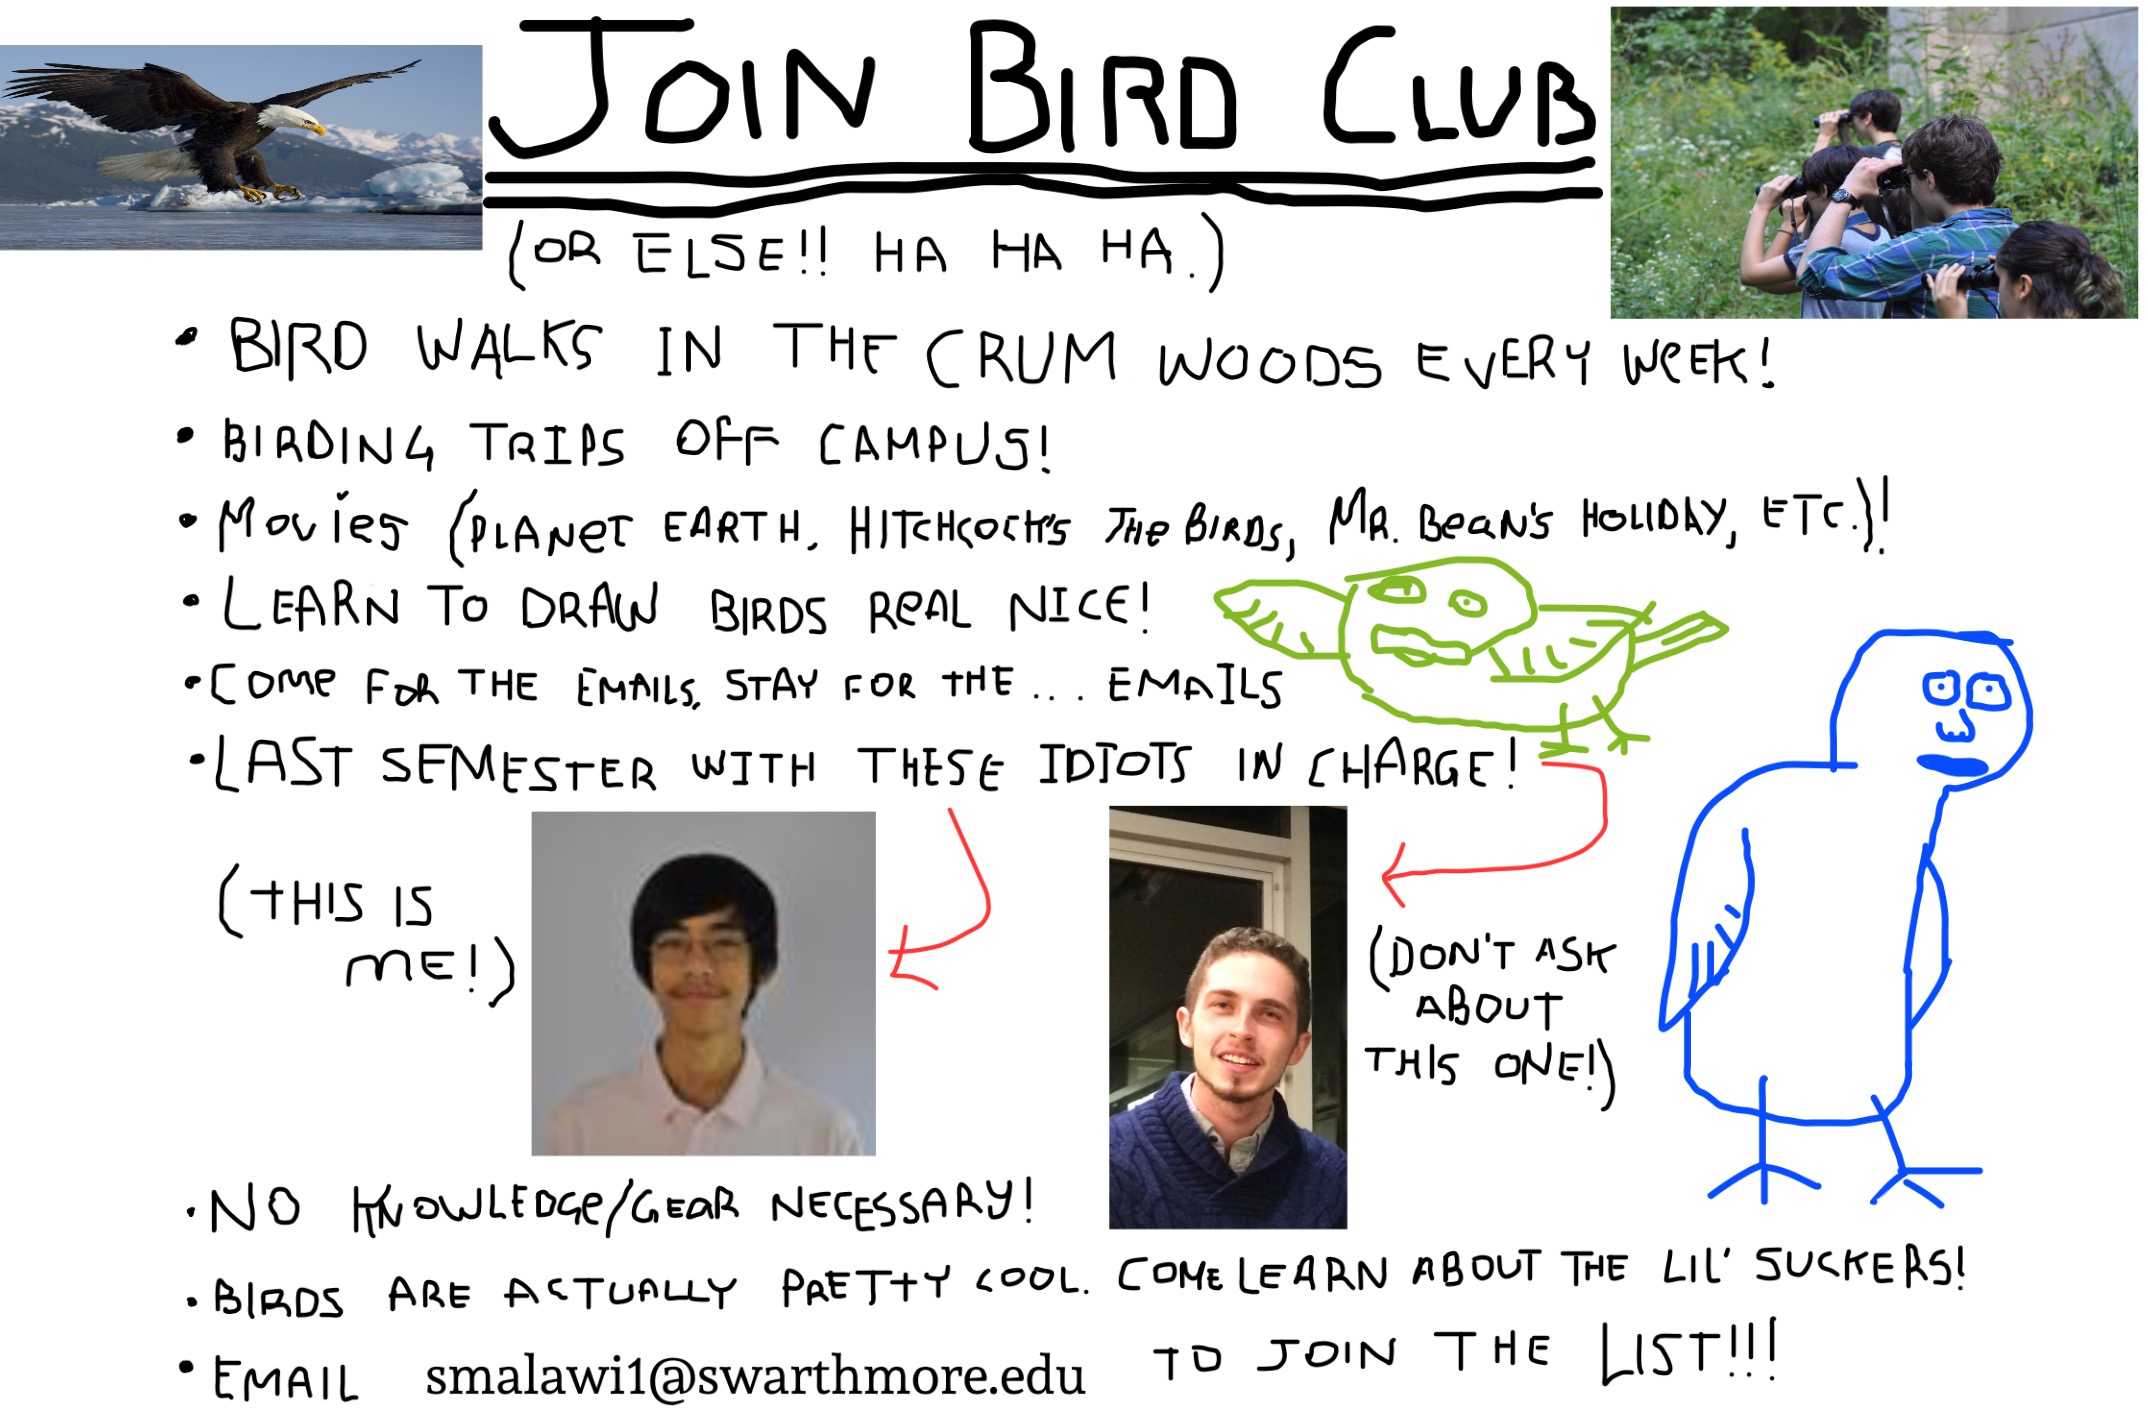 JOIN BIRD CLUB
(OR ELSE!! HA HA HA.)
• BIRD WALKS IN THE CRUM WOODS EVERY WEEK!
• BIRDING TRIPS OFF CAMPUS!
• MOVIES (PLANET EARTH, HITCHCOCK'S THE BIRDS, MR. BEAN'S HOLIDAY, ETC.)!
• LEARN TO DRAW BIRDS REAL NICE!
• COME FOR THE EMAILS, STAY FOR THE ... EMAILS
• LAST SEMESTER WITH THESE IDIOTS IN CHARGE!
(THIS IS
ME!)
(DON'T ASK
ABOUT
THIS ONE!)
• NO KNOWLEDGE/GEAR NECESSARY!
• BIRDS ARE ACTUALLY PRETTY COOL. COME LEARN ABOUT THE LIL' SUCKERS!
• EMAIL smalawi1@swarthmore.edu TO JOIN THE LIST!!!